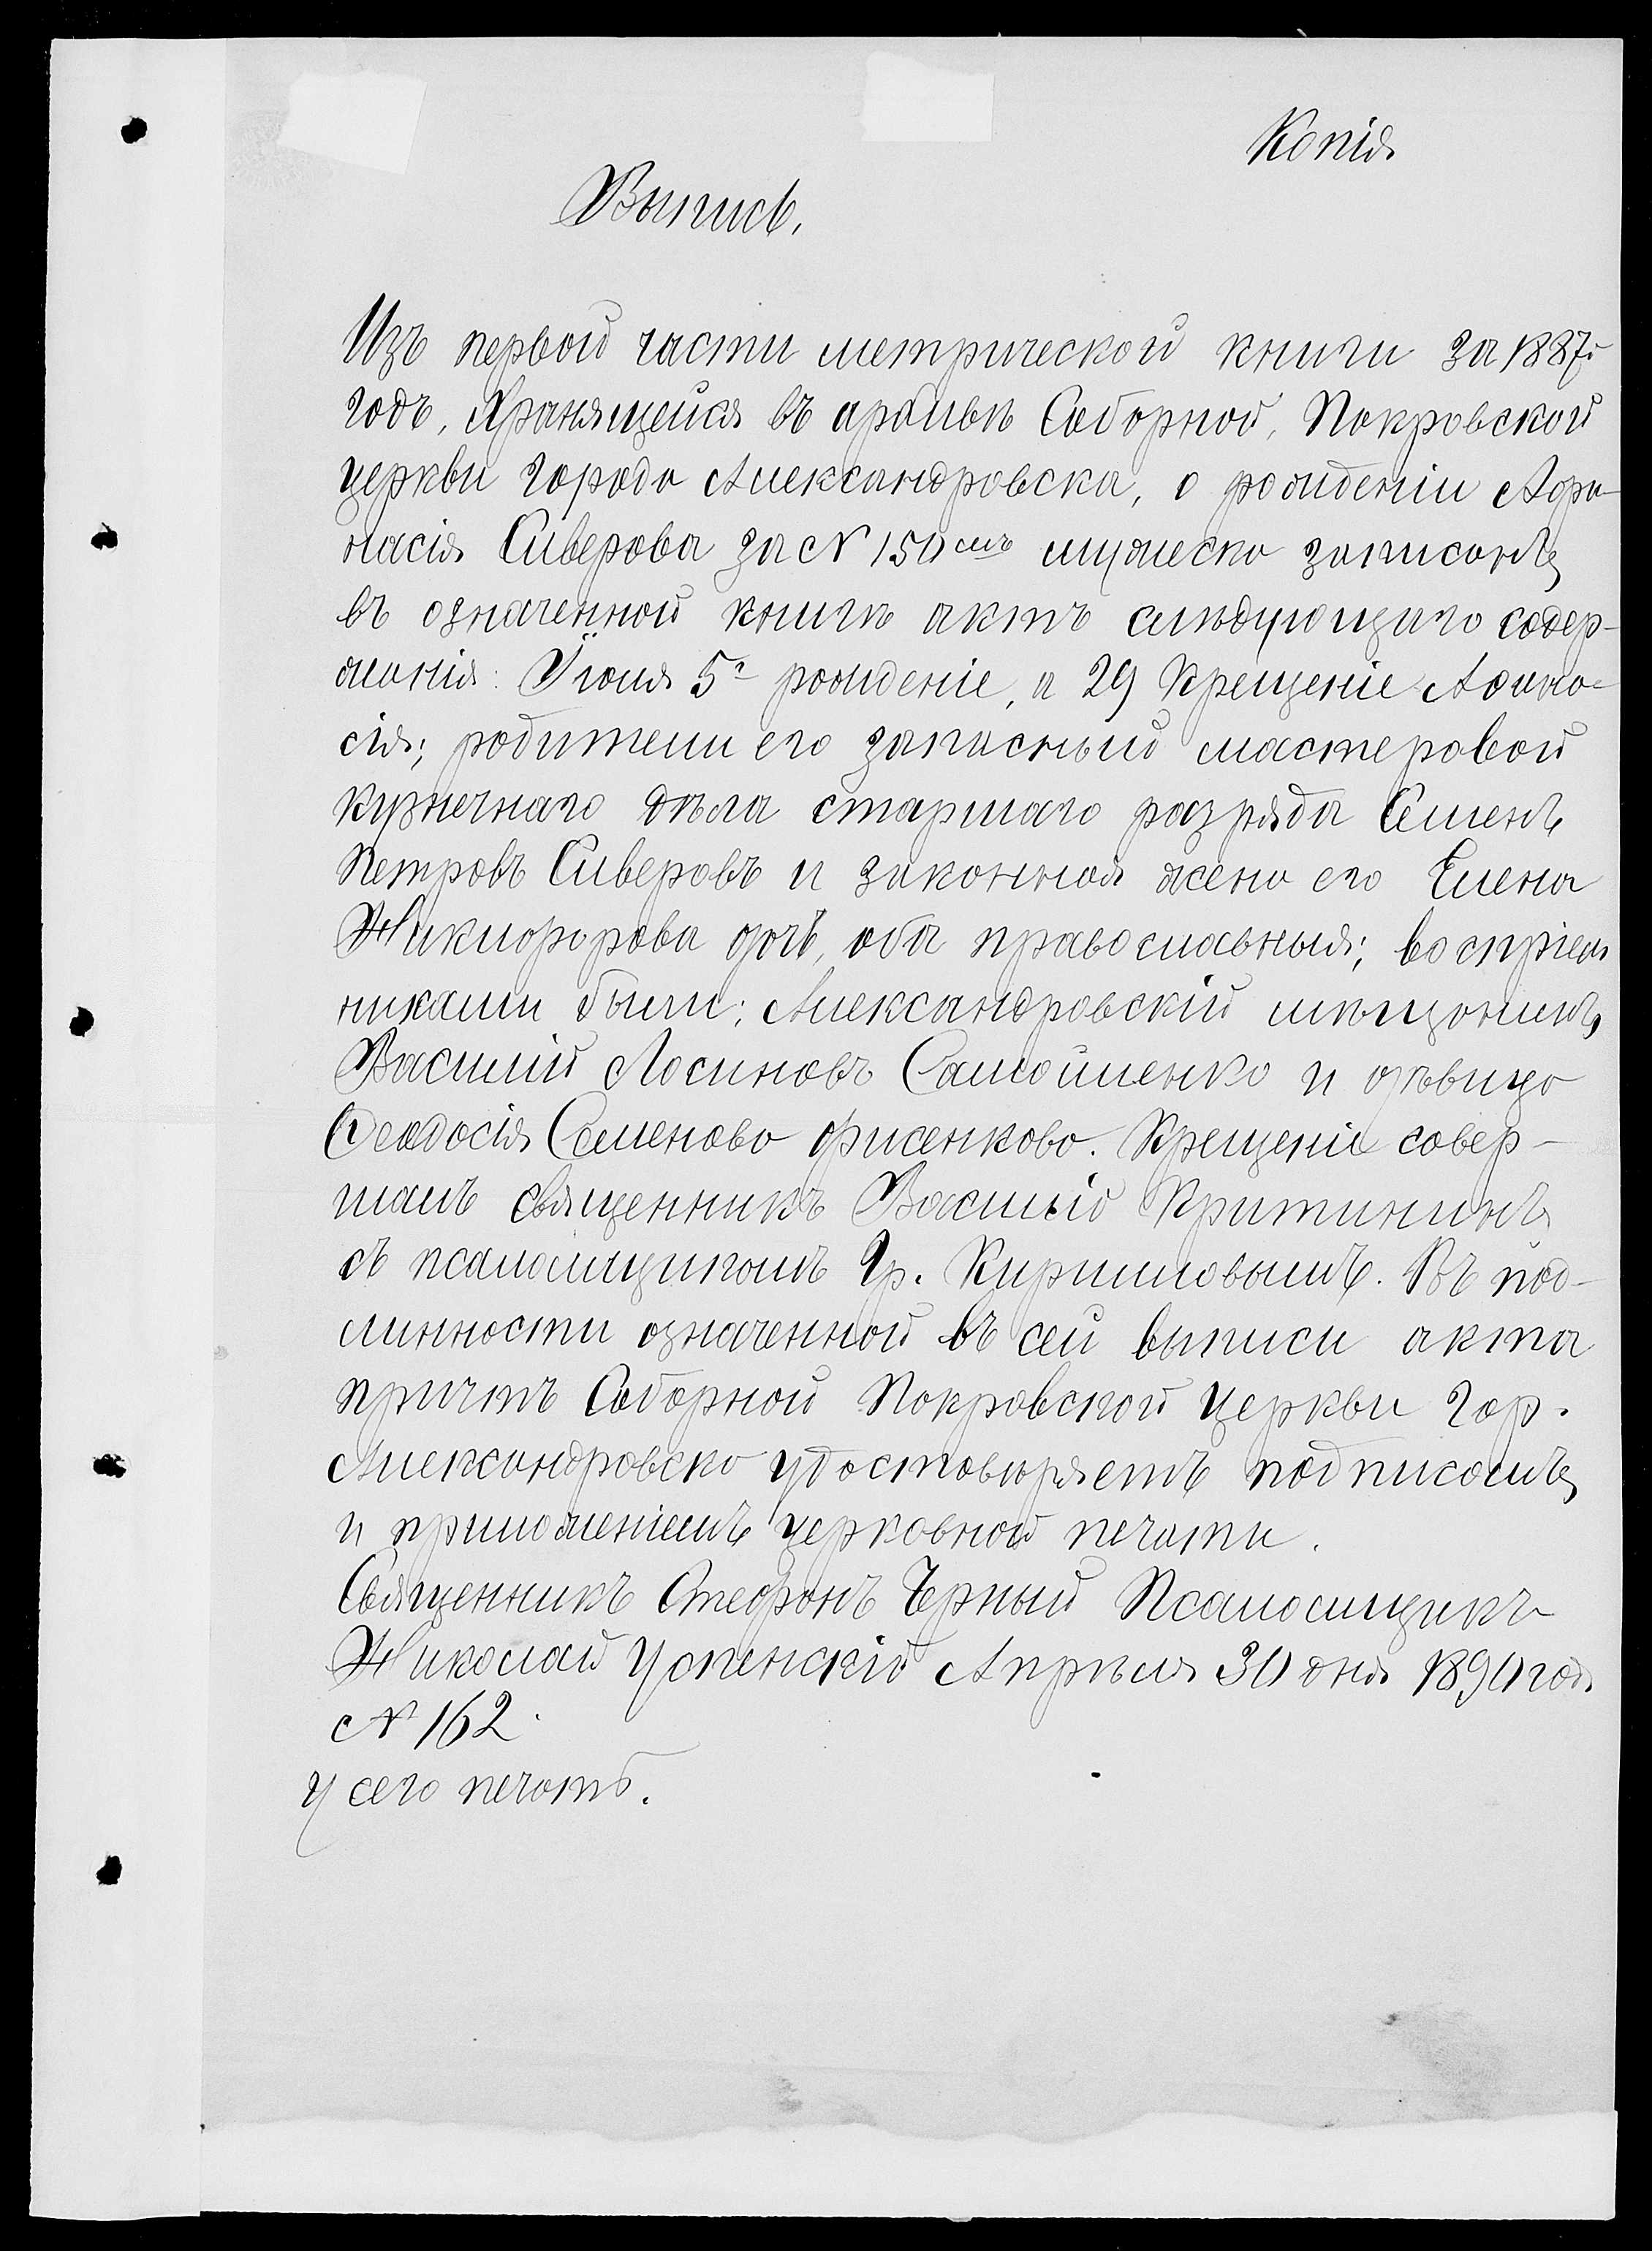 Копія
Выпись,
Изъ первой части метрической книги за 1887й
годъ, хранящейся въ архивѣ Соборной, Покровской
церкви города Александровска, о рожденіи Афа-
насія Сиверова за № 150мъ мужеска записанъ
въ означенной книгѣ актъ слѣдующаго содер-
жанія: Іюля 5го рожденіе, а 29 крещеніе Афана-
сія; родители его запасный мастеровой
кузнечнаго дѣла старшаго разряда Семенъ
Петровъ Сиверовъ и законная жена его Елена
Никифорова дочь, оба православныя; воспріем
никами были: Александровскій мѣщанинъ
Василій Самойленко и дѣвица
Феодосія Семенова Фисенкова. Крещеніе совер-
шалъ священникъ Василій Критининъ
съ псаломщикомъ Гр. Кирилловымъ. Въ под-
линности означенной въ сей выписи акта
причтъ Соборной Покровской церкви гор.
Александровска удостовѣряетъ подписомъ
и приложеніемъ церковной печати.
Священникъ Стефанъ Черный Псаломщикъ
Николай Успенскій Апрѣля 30 дня 1890 год.
№ 162.
у сего печать.